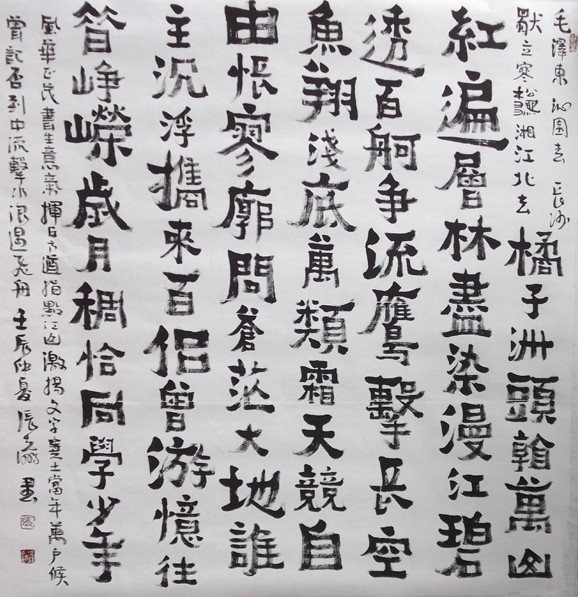 毛澤東 沁園春 長沙
獨立寒秋湘江北去
橘子洲頭看萬山
紅遍層林盡染漫江碧
透百舸争流鷹擊長空
魚翔淺底萬類霜天競自
由悵寥廓問蒼茫大地誰
主沉浮攜來百侶曾游憶往
昔崢嶸歲月稠恰同學少年
風華正茂書生意氣揮斥方遒指點江山激揚文字糞土當年萬戶候
曾記否到中流擊水浪遏飛舟 壬辰仲夏 張 書